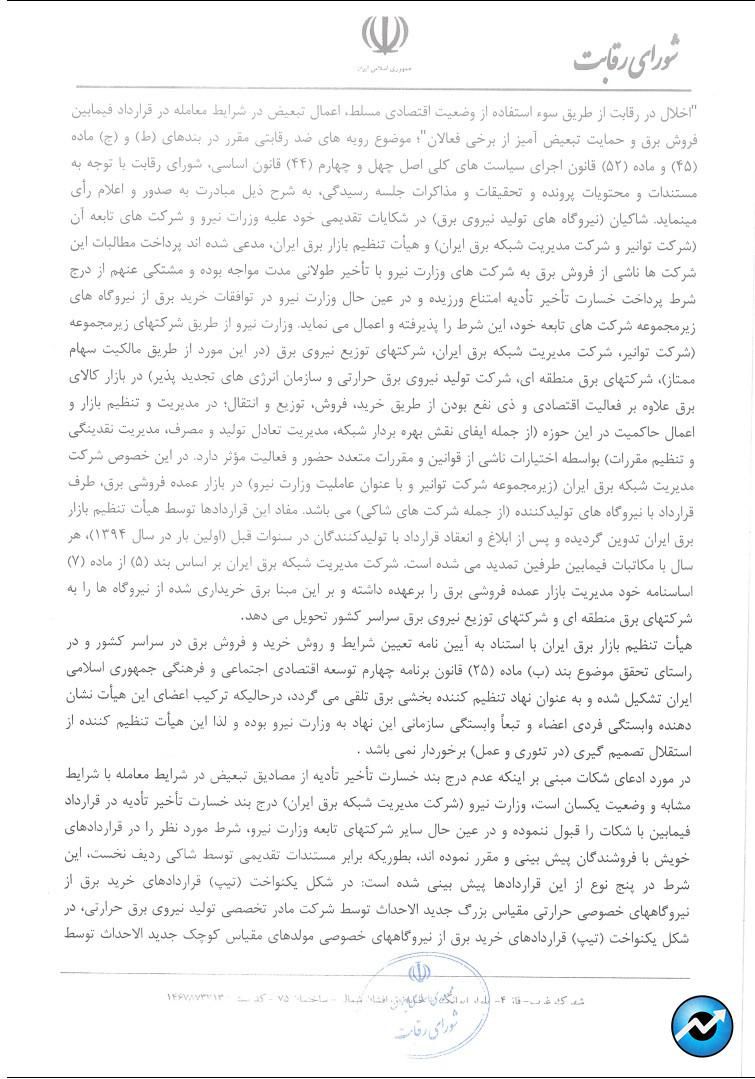 شورای رقابت
جمهوری اسلامی ایران
"اخلال در رقابت از طریق سوء استفاده از وضعیت اقتصادی مسلط، اعمال تبعیض در شرایط معامله در قرارداد فیمابین
فروش برق و حمایت تبعیض آمیز از برخی فعالان"؛ موضوع رویه های ضد رقابتی مقرر در بندهای (ط) و (ج) ماده
(۴۵) و ماده (۵۲) قانون اجرای سیاست های کلی اصل چهل و چهارم (۴۴) قانون اساسی، شورای رقابت با توجه به
مستندات و محتویات پرونده و تحقیقات و مذاکرات جلسه رسیدگی، به شرح ذیل مبادرت به صدور و اعلام رأی
مینماید. شاکیان (نیروگاه های تولید نیروی برق) در شکایات تقدیمی خود علیه وزرات نیرو و شرکت های تابعه آن
(شرکت توانیر و شرکت مدیریت شبکه برق ایران) و هیأت تنظیم بازار برق ایران، مدعی شده اند پرداخت مطالبات این
شرکت ها ناشی از فروش برق به شرکت های وزارت نیرو با تأخیر طولانی مدت مواجه بوده و مشتکی عنهم از درج
شرط پرداخت خسارت تأخیر تأدیه امتناع ورزیده و در عین حال وزارت نیرو در توافقات خرید برق از نیروگاه های
زیرمجموعه شرکت های تابعه خود، این شرط را پذیرفته و اعمال می نماید. وزارت نیرو از طریق شرکتهای زیرمجموعه
(شرکت توانیر، شرکت مدیریت شبکه برق ایران، شرکتهای توزیع نیروی برق (در این مورد از طریق مالکیت سهام
ممتاز)، شرکتهای برق منطقه ای، شرکت تولید نیروی برق حرارتی و سازمان انرژی های تجدید پذیر) در بازار کالای
برق علاوه بر فعالیت اقتصادی و ذی نفع بودن از طریق خرید، فروش، توزیع و انتقال؛ در مدیریت و تنظیم بازار و
اعمال حاکمیت در این حوزه (از جمله ایفای نقش بهره بردار شبکه، مدیریت تعادل تولید و مصرف، مدیریت نقدینگی
و تنظیم مقررات) بواسطه اختیارات ناشی از قوانین و مقررات متعدد حضور و فعالیت مؤثر دارد. در این خصوص شرکت
مدیریت شبکه برق ایران (زیرمجموعه شرکت توانیر و با عنوان عاملیت وزارت نیرو) در بازار عمده فروشی برق، طرف
قرارداد با نیروگاه های تولیدکننده (از جمله شرکت های شاکی) می باشد. مفاد این قراردادها توسط هیأت تنظیم بازار
برق ایران تدوین گردیده و پس از ابلاغ و انعقاد قرارداد با تولیدکنندگان در سنوات قبل (اولین بار در سال ۱۳۹۴)، هر
سال با مکاتبات فیمابین طرفین تمدید می شده است. شرکت مدیریت شبکه برق ایران بر اساس بند (۵) از ماده (۷)
اساسنامه خود مدیریت بازار عمده فروشی برق را برعهده داشته و بر این مبنا برق خریداری شده از نیروگاه ها را به
شرکتهای برق منطقه ای و شرکتهای توزیع نیروی برق سراسر کشور تحویل می دهد.
هیأت تنظیم بازار برق ایران با استناد به آیین نامه تعیین شرایط و روش خرید و فروش برق در سراسر کشور و در
راستای تحقق موضوع بند (ب) ماده (۲۵) قانون برنامه چهارم توسعه اقتصادی اجتماعی و فرهنگی جمهوری اسلامی
ایران تشکیل شده و به عنوان نهاد تنظیم کننده بخشی برق تلقی می گردد، درحالیکه ترکیب اعضای این هیأت نشان
دهنده وابستگی فردی اعضاء و تبعاً وابستگی سازمانی این نهاد به وزارت نیرو بوده و لذا این هیأت تنظیم کننده از
استقلال تصمیم گیری (در تئوری و عمل) برخوردار نمی باشد .
در مورد ادعای شکات مبنی بر اینکه عدم درج بند خسارت تأخیر تأدیه از مصادیق تبعیض در شرایط معامله با شرایط
مشابه و وضعیت یکسان است، وزارت نیرو (شرکت مدیریت شبکه برق ایران) درج بند خسارت تأخیر تأدیه در قرارداد
فیمابین با شکات را قبول ننموده و در عین حال سایر شرکتهای تابعه وزارت نیرو، شرط مورد نظر را در قراردادهای
خویش با فروشندگان پیش بینی و مقرر نموده اند، بطوریکه برابر مستندات تقدیمی توسط شاکی ردیف نخست، این
شرط در پنج نوع از این قراردادها پیش بینی شده است: در شکل یکنواخت (تیپ) قراردادهای خرید برق از
نیروگاههای خصوصی حرارتی مقیاس بزرگ جدید الاحداث توسط شرکت مادر تخصصی تولید نیروی برق حرارتی، در
شکل یکنواخت (تیپ) قراردادهای خرید برق از نیروگاههای خصوصی مولدهای مقیاس کوچک جدید الاحداث توسط
شهرک غرب - فاز ۴ - شمال - ساختمان ۷۵
شورای رقابت